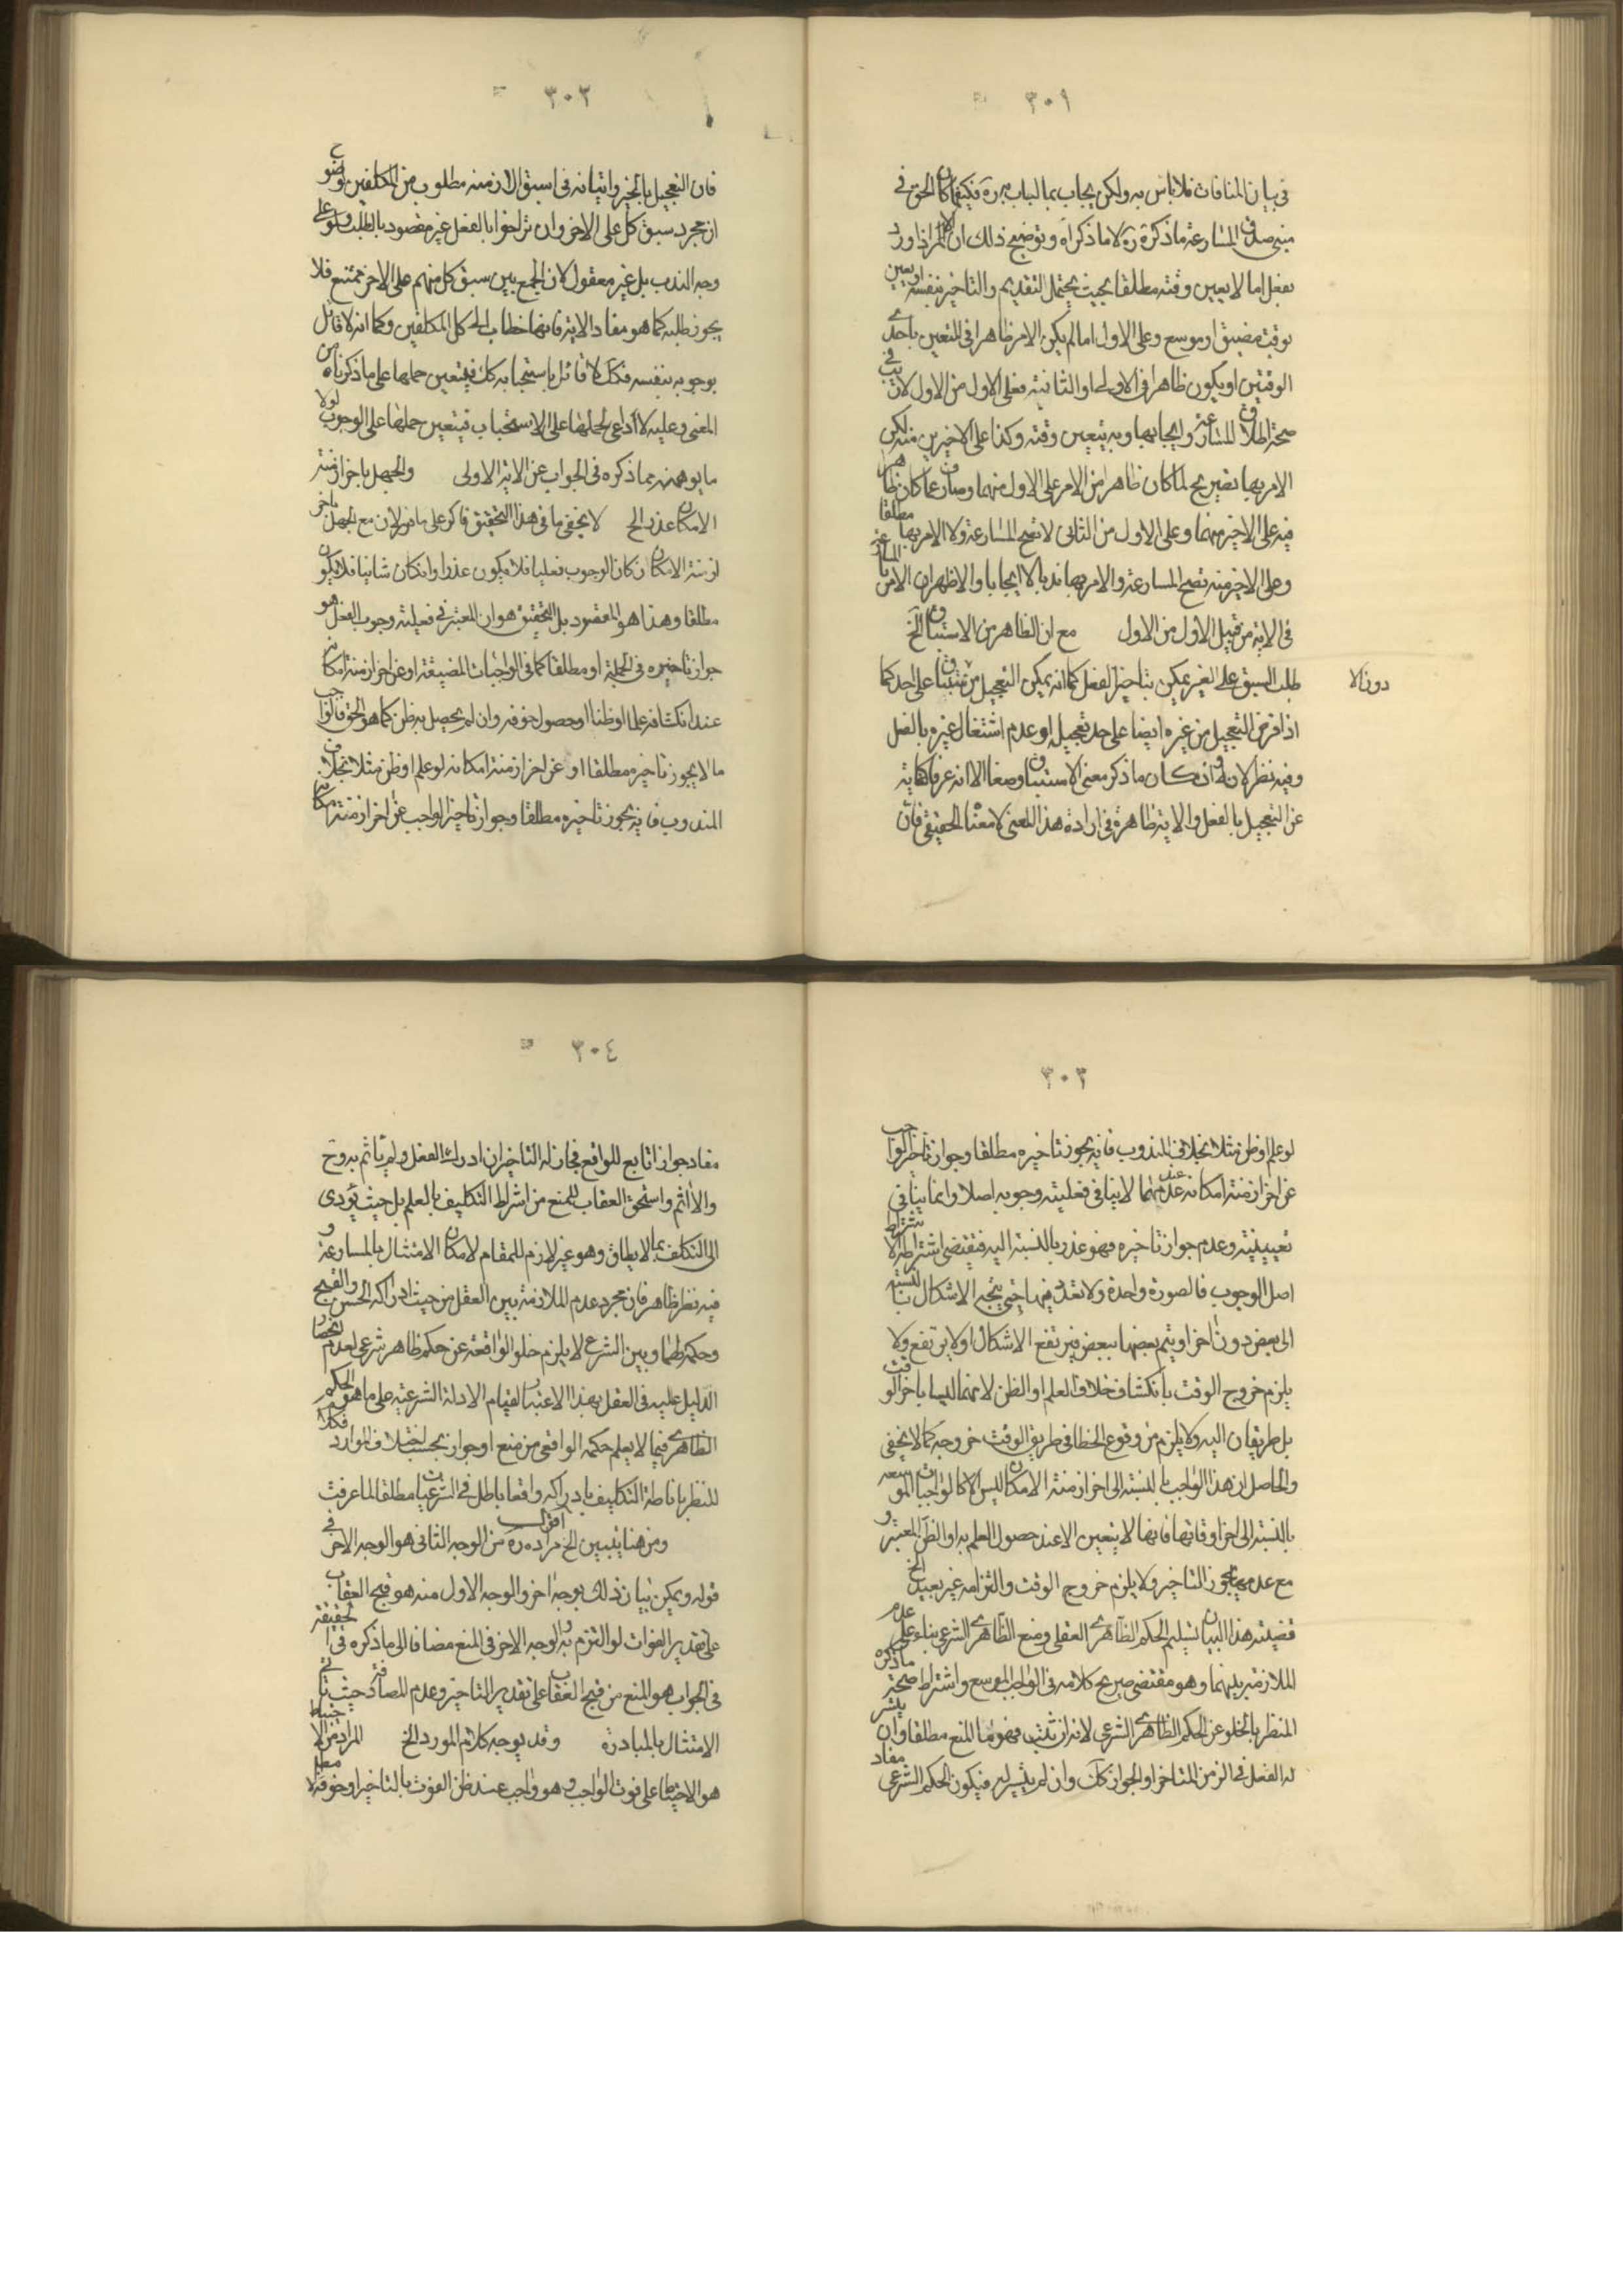 ٣٠١
في بيان المنافات فلا باس به ولكن يجاب بما لباب مرة فكيفما كان الحق في
مبنى صدق المسارعة ما ذكره ره لا ما ذكراه وتوضيح ذلك ان الامر اذا ورد
بفعل اما لا يعين وقته مطلقا بحيث يحتمل التقديم والتاخير بنفسه او يعين
بوقت مضيق او موسع وعلى الاول اما لم يكن الامر ظاهرا في التعين باحدى
الوقتين او يكون ظاهرا في الاولى او الثانية فعلى الاول من الاول لا ريب في
صحة اطلاق المسارعة وايجابها وبه يتعين وقته وكذا على الاخيرين منه لكن
الامر بها تصريح لما كان ظاهرا من الامر على الاول منهما وصارف عما كان ظاهرا
فيه على الاخير منهما وعلى الاول من الثاني لا تصح المسارعة ولا الامر بها مطلقا
وعلى الاخير منه تصح المسارعة والامر بها ندبا لا ايجابا والاظهر ان الامر بالمسارعة
في الاية من قبيل الاول من الاول مع ان الظاهر من الاستباق الخ
طلب السبق على الغير يمكن بتاخير الفعل كما انه يمكن التعجيل من متفقا على احد كما
دون الا
اذا فرض التعجيل من غيره ايضا على حد تعجيله او عدم اشتغال غيره بالفعل
وفيه نظر لانه وان كان ما ذكر معنى الاستباق وضعا الا انه عرفا كناية
عن التعجيل بالفعل والاية ظاهرة في ارادة هذا المعنى لا معناه الحقيقي فان
٣٠٢
فان التعجيل بالخير واتيانه في اسبق الازمنة مطلوب من المكلفين لوضوح
ان مجرد سبق كل على الاخر وان تراخوا بالفعل غير مقصود بالطلب ولو على
وجه الندب بل غير معقول لان الجمع بين سبق كل منهم على الاخر ممتنع فلا
يجوز طلبه كما هو مفاد الاية فانها خطاب الى كل المكلفين وكما انه لا قائل
بوجوبه بنفسه فكك لا قائل باستحبابه كك فيتعين حملها على ما ذكرناه من
المعنى وعليه لا داعي لحملها على الاستحباب فيتعين حملها على الوجوب لولا
ما يوهنه مما ذكره في الجواب عن الاية الاولى والجهل باخر ازمنة
الامكان عذر الخ لا يخفى ما في هذا التحقيق فاكر على ما فر لان مع الجهل باخر
ازمنة الامكان ان كان الوجوب فعليا فلا يكون عذرا وان كان شانيا فلا يكون
مطلقا وهذا هو المقصود بل التحقيق هو ان المعتبر في فعلية وجوب الفعل هو
جواز تاخيره في الجملة او مطلقا كما في الواجبات المضيقة او عن اخر ازمنة امكانه
عند انكشافه علما او ظنا او حصول خوفه وان لم يحصل به ظن كما هو الحق فالواجب
ما لا يجوز تاخيره مطلقا او عن اخر ازمنة امكانه لو علم او ظن مثلا بخلاف
المندوب فانه يجوز تاخيره مطلقا وجواز تاخير الواجب عن اخر ازمنة امكانه
٣٠٣
لو علم او ظن مثلا بخلاف المندوب فانه يجوز تاخيره مطلقا وجواز تاخير الواجب
عن اخر ازمنة امكانه عند عدمهما لا ينافي فعلية وجوبه اصلا وانما ينافي
تعيينيته وعدم جواز تاخيره فهو عذر بالنسبة اليه فيقتضي اشتراطه لا اشتراط
اصل الوجوب فالصورة واحدة ولا تعدد فيها حتى يتجه الاشكال بالنسبة
الى بعض دون اخر او يتم بعضها ببعض فيرتفع الاشكال او لا يرتفع ولا
يلزم خروج الوقت بانكشاف خلاف العلم او الظن لانهما ليسا باخر الوقت
بل طريقان اليه ولا يلزم من وقوع الخطا في طريق الوقت خروجه كما لا يخفى
والحاصل ان هذا الواجب بالنسبة الى اخر ازمنة الامكان ليس الا كالواجبات الموسعه
بالنسبة الى اخر اوقاتها فانها لا يتعين الا عند حصول العلم به او الظن المعتبر و
مع عدمهما يجوز التاخير ولا يلزم خروج الوقت والتزامه غير بعيد الخ
قضية هذا البيان تسليم الحكم الظاهري العقلي ومنع الظاهري الشرعي بناء على عدم
الملازمة بينهما وهو مقتضى صريح كلامه في الواجب الموسع واشتراط صحة ما ذكره
المنظر بالخلو عن الحكم الظاهري الشرعي لانه ان ثبت فهو اما المنع مطلقا وان يتيسر
له الفعل في الزمن المتاخر او الجواز كك وان لم يتيسر له فيكون الحكم الشرعي مفاد
٣٠٤
مفاد جواز اتابع للواقع فجاز له التاخير ان ادرك الفعل ولم ياثم به وح
والا اثم واستحق العقاب للمنع من اشتراط التكليف بالعلم بل حيث يؤدى
الى التكلف بما لا يطاق وهو غير لازم للمقام لامكان الامتثال بالمسارعة و
فيه نظر ظاهر فان مجرد عدم الملازمة بين العقل من حيث ادراكه الحسن والقبح
وحكمه طهما وبين الشرع لا يلزم خلو الواقعة عن حكم ظاهر شرعي لعدم انحصار
الدليل عليه في العقل بهذا الاعتبار لقيام الادلة الشرعية على ما هو الحكم
الظاهري فيما لا يعلم حكمه الواقعي من منع او جواز بحسب اختلاف الموارد فكلام
للنظر باناطة التكليف بادراكه واقعا باطل في الشرعيات مطلقا لما عرفت
ومن هنا يتبين الخ اقول مراده ره من الوجه الثاني هو الوجه الاخر في
قوله ويمكن بيان ذلك بوجه اخر والوجه الاول منه هو قبح العقاب
على تقدير الفوات لو التزم به والوجه الاخر في المنع مضافا الى ما ذكره في الحقيقة
في الجواب هو المنع من قبح العقاب على تقدير التاخير وعدم المصادفة حيث يتاتى
الامتثال بالمبادرة وقد يوجه كلام المورد الخ المراد من الاحتياط
هو الاحتياط على فوت الواجب وهو واجب عند ظن الفوت بالتاخير او خوفه لا مطلقا